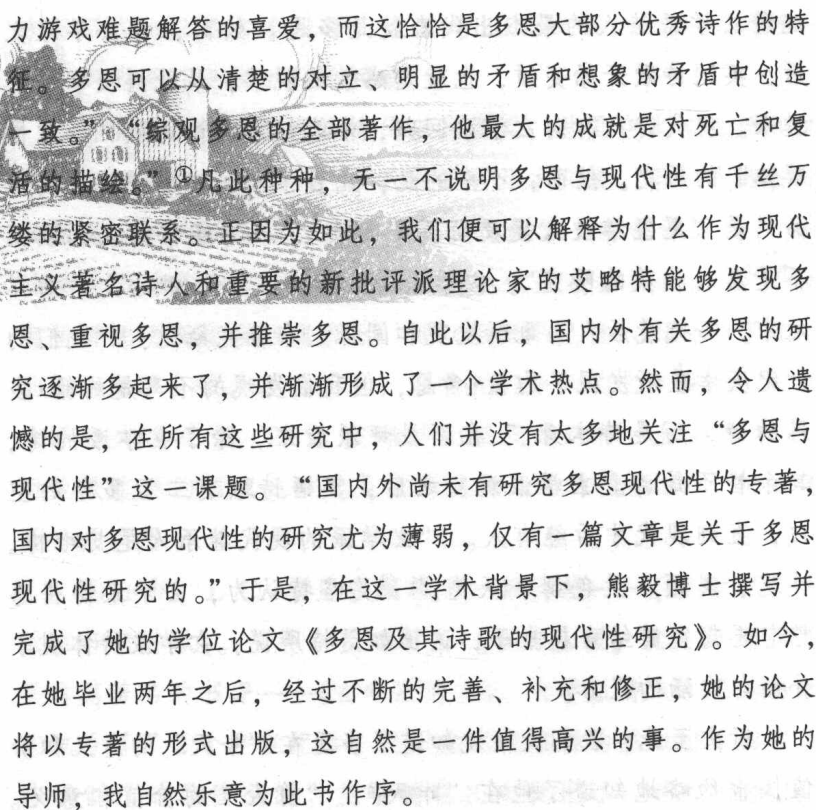 力游戏难题解答的喜爱，而这恰恰是多恩大部分优秀诗作的特
征。多恩可以从清楚的对立、明显的矛盾和想象的矛盾中创造
一致。”“综观多恩的全部著作，他最大的成就是对死亡和复
活的描绘。”①凡此种种，无一不说明多恩与现代性有千丝万
缕的紧密联系。正因为如此，我们便可以解释为什么作为现代
主义著名诗人和重要的新批评派理论家的艾略特能够发现多
恩、重视多恩，并推崇多恩。自此以后，国内外有关多恩的研
究逐渐多起来了，并渐渐形成了一个学术热点。然而，令人遗
憾的是，在所有这些研究中，人们并没有太多地关注“多恩与
现代性”这一课题。“国内外尚未有研究多恩现代性的专著，
国内对多恩现代性的研究尤为薄弱，仅有一篇文章是关于多恩
现代性研究的。”于是，在这一学术背景下，熊毅博士撰写并
完成了她的学位论文《多恩及其诗歌的现代性研究》。如今，
在她毕业两年之后，经过不断的完善、补充和修正，她的论文
将以专著的形式出版，这自然是一件值得高兴的事。作为她的
导师，我自然乐意为此书作序。